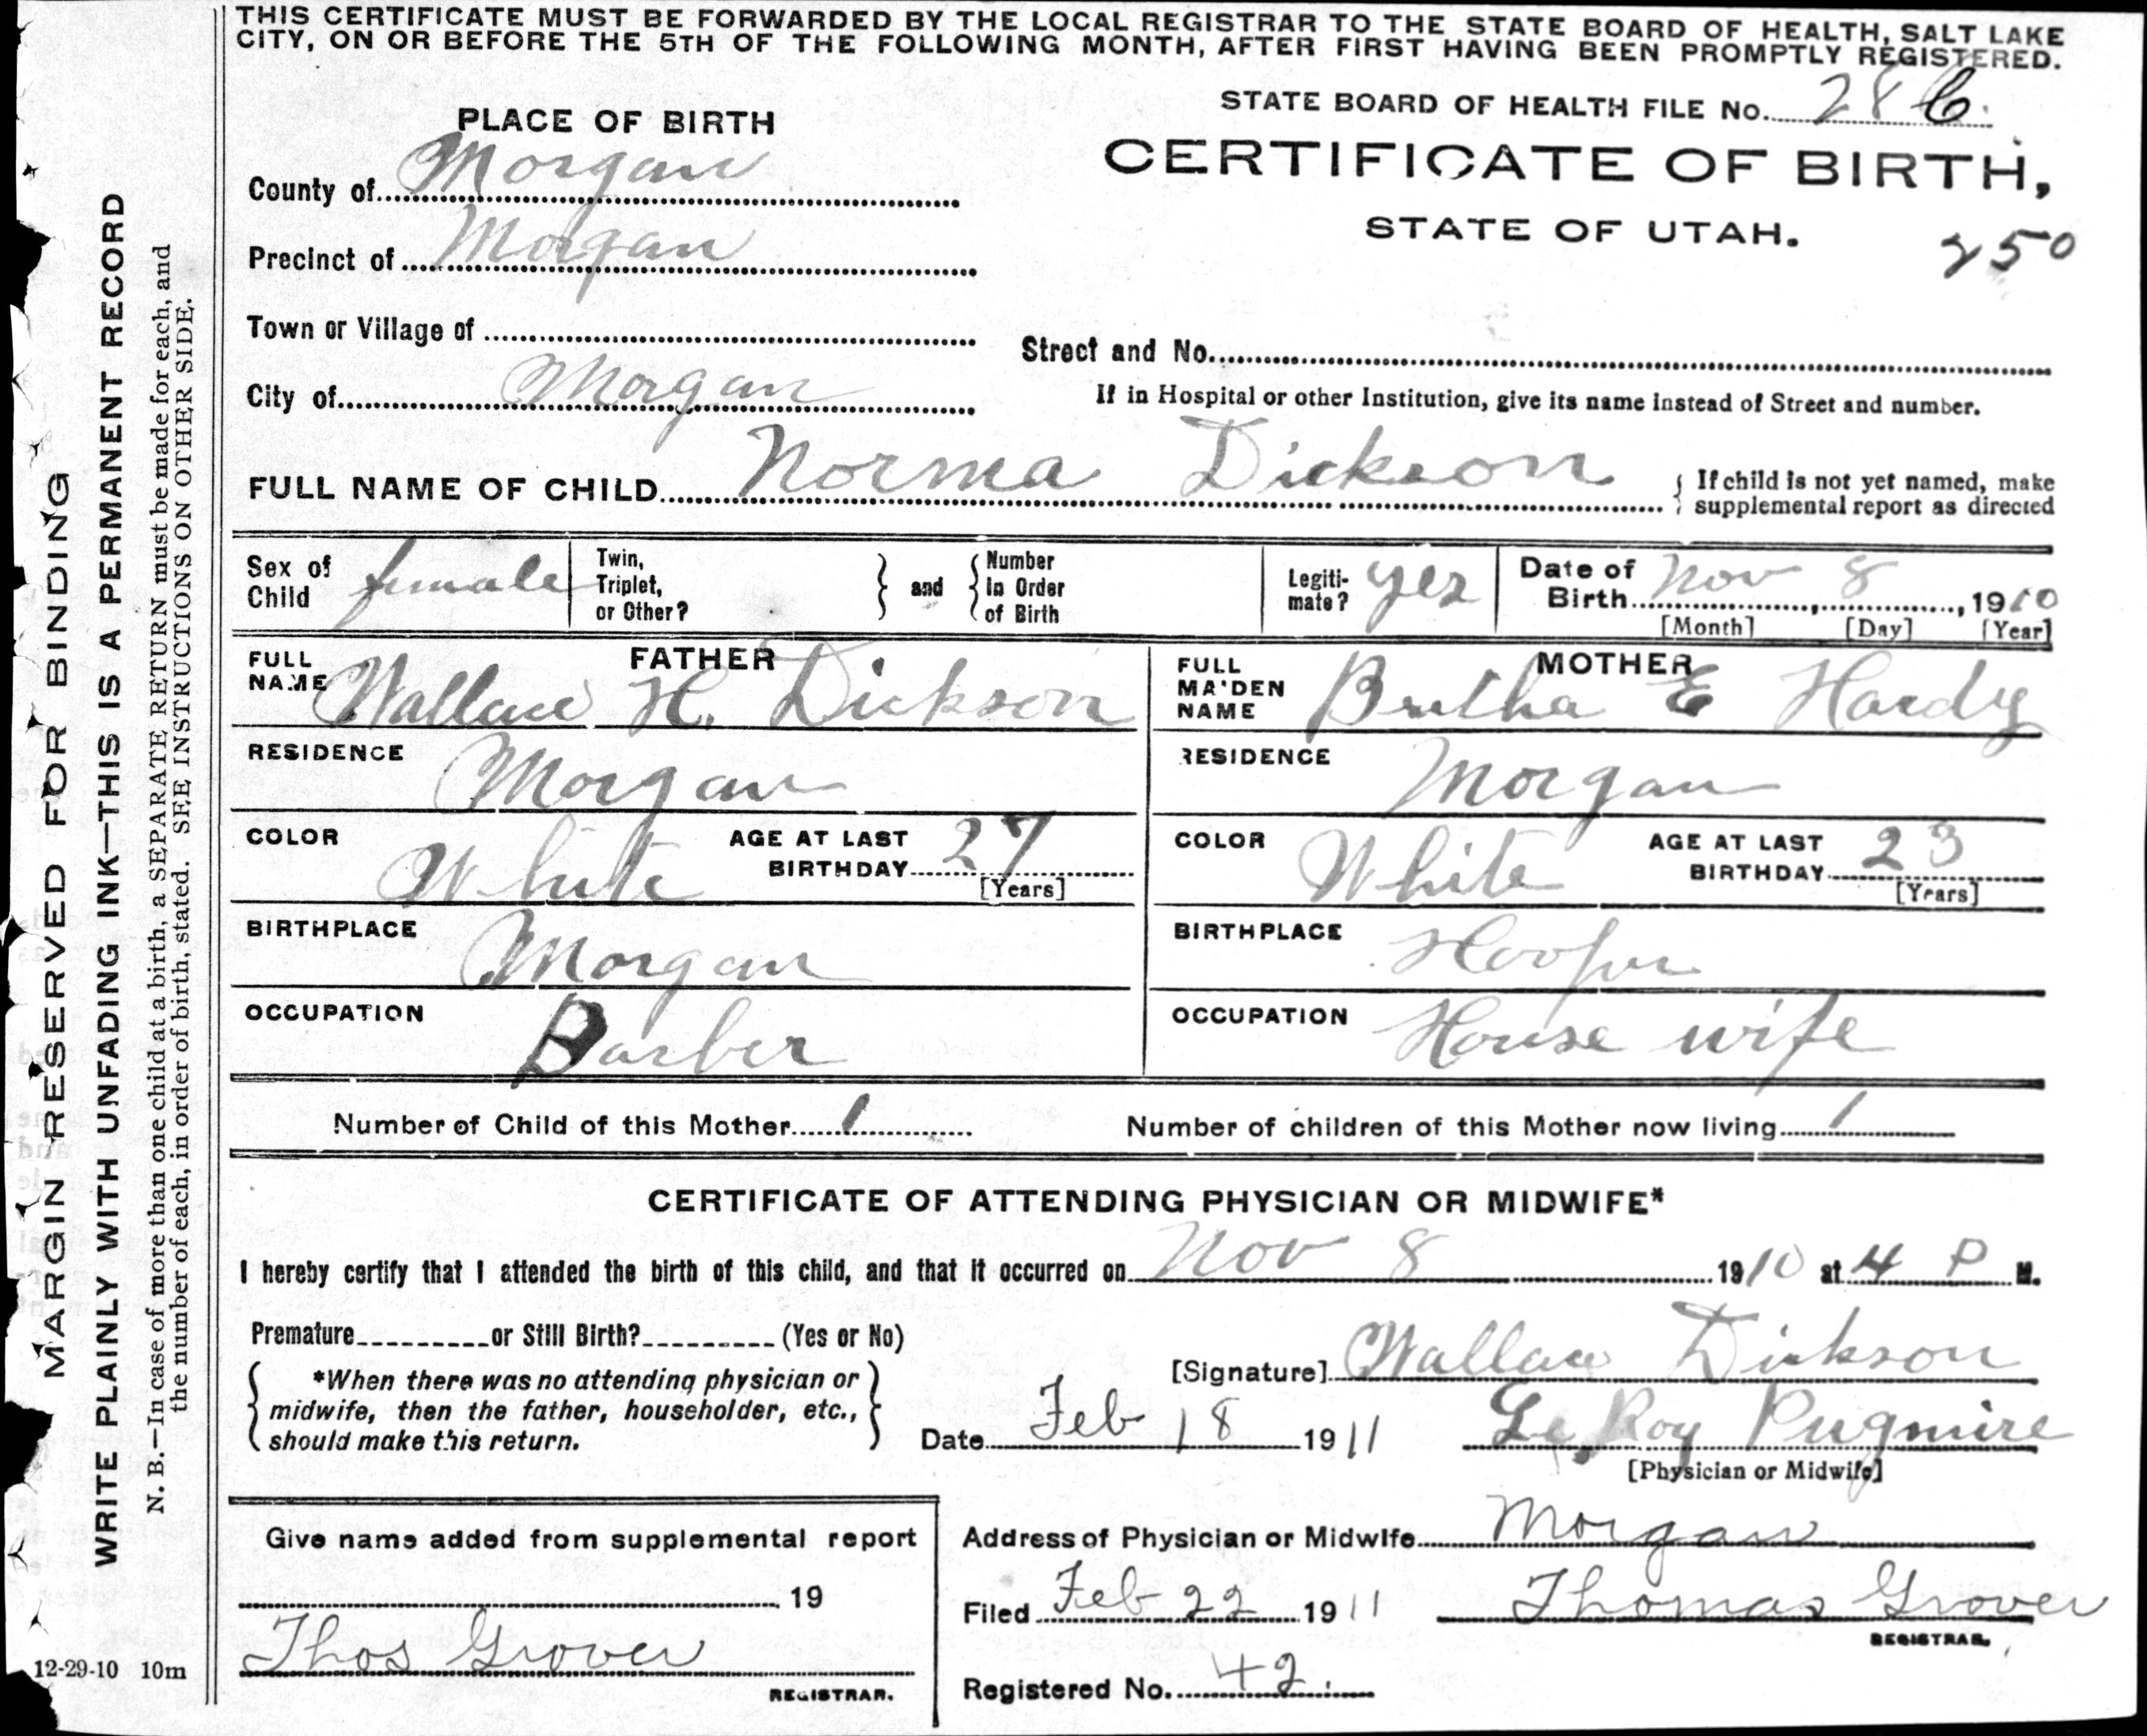 THIS CERTIFICATE MUST BE FORWARDED BY THE LOCAL REGISTRAR TO THE STATE BOARD OF HEALTH, SALT LAKE
CITY, ON OR BEFORE THE 5TH OF THE FOLLOWING MONTH, AFTER FIRST HAVING BEEN PROMPTLY REGISTERED.
STATE BOARD OF HEALTH FILE No. 28
PLACE OF BIRTH
CERTIFICATE OF BIRTH,
STATE OF UTAH.
250
County of Morgan
Precinct of Morgan
Town or Village of
Street and No.
City of Morgan
If in Hospital or other Institution, give its name instead of Street and number.
FULL NAME OF CHILD Norma Dickson
If child is not yet named, make
supplemental report as directed
Sex of Child female
Twin, Triplet, or Other?
and
Number in Order of Birth
Legiti-mate? yes
Date of Birth Nov 8, 1910
[Month] [Day] [Year]
FATHER
FULL NAME Wallace H. Dickson
MOTHER
FULL MAIDEN NAME Bertha E Hardy
RESIDENCE Morgan
RESIDENCE Morgan
COLOR White
AGE AT LAST BIRTHDAY 27
[Years]
COLOR White
AGE AT LAST BIRTHDAY 23
[Years]
BIRTHPLACE Morgan
BIRTHPLACE Hooper
OCCUPATION Barber
OCCUPATION House wife
Number of Child of this Mother 1
Number of children of this Mother now living 1
CERTIFICATE OF ATTENDING PHYSICIAN OR MIDWIFE*
I hereby certify that I attended the birth of this child, and that it occurred on Nov 8 1910 at 4 P M.
Premature or Still Birth? (Yes or No)
[Signature] Wallace Dickson
*When there was no attending physician or
midwife, then the father, householder, etc.,
should make this return.
Date Feb 18 1911
Le Roy Pugmire
[Physician or Midwife]
Give name added from supplemental report
19
Thos Grover
REGISTRAR.
Address of Physician or Midwife Morgan
Filed Feb 22 1911
Thomas Grover
REGISTRAR.
Registered No. 42.
12-29-10 10m
MARGIN RESERVED FOR BINDING
WRITE PLAINLY WITH UNFADING INK—THIS IS A PERMANENT RECORD
N. B.—In case of more than one child at a birth, a SEPARATE RETURN must be made for each, and
the number of each, in order of birth, stated. SEE INSTRUCTIONS ON OTHER SIDE.